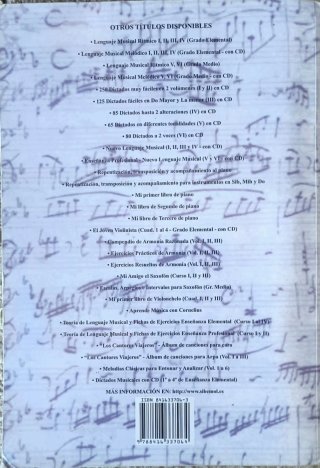 OTROS TÍTULOS DISPONIBLES
• Lenguaje Musical Rítmico I, II, III, IV (Grado Elemental)
• Lenguaje Musical Melódico I, II, III, IV (Grado Elemental - con CD)
• Lenguaje Musical Rítmico V, VI (Grado Medio)
• Lenguaje Musical Melódico V, VI (Grado Medio - con CD)
• 250 Dictados muy fáciles en 2 volúmenes (I y II) en CD
• 125 Dictados fáciles en Do Mayor y La menor (III) en CD
• 85 Dictados hasta 2 alteraciones (IV) en CD
• 65 Dictados en diferentes tonalidades (V) en CD
• 80 Dictados a 2 voces (VI) en CD
• Nuevo Lenguaje Musical (I, II, III y IV - con CD)
• Enseñanza Profesional - Nuevo Lenguaje Musical (V y VI - con CD)
• Repentización, transposición y acompañamiento al piano
• Repentización, transposición y acompañamiento para instrumentos en Sib, Mib y Do
• Mi primer libro de piano
• Mi libro de Segundo de piano
• Mi libro de Tercero de piano
• El Joven Violinista (Cuad. 1 al 4 - Grado Elemental - con CD)
• Compendio de Armonía Razonada (Vol. I, II, III)
• Ejercicios Prácticos de Armonía (Vol. I, II, III)
• Ejercicios Resueltos de Armonía (Vol. I, II, III)
• Mi Amigo el Saxofón (Curso I, II y III)
• Escalas, Arpegios e Intervalos para Saxofón (Gr. Medio)
• Mi primer libro de Violonchelo (Cuad. I, II y III)
• Aprende Música con Cornelius
• Teoría de Lenguaje Musical y Fichas de Ejercicios Enseñanza Elemental (Curso I al IV)
• Teoría de Lenguaje Musical y Fichas de Ejercicios Enseñanza Profesional (Curso I y II)
• "Los Cantores Viajeros" - Álbum de canciones para coro
• "Los Cantores Viajeros" - Álbum de canciones para Arpa (Vol. I a III)
• Melodías Clásicas para Entonar y Analizar (Vol. 1 a 6)
• Dictados Musicales con CD (1º a 4º de Enseñanza Elemental)
MÁS INFORMACIÓN EN: http://www.sibemol.es
ISBN 84-14-33704-3
9 788414 337044